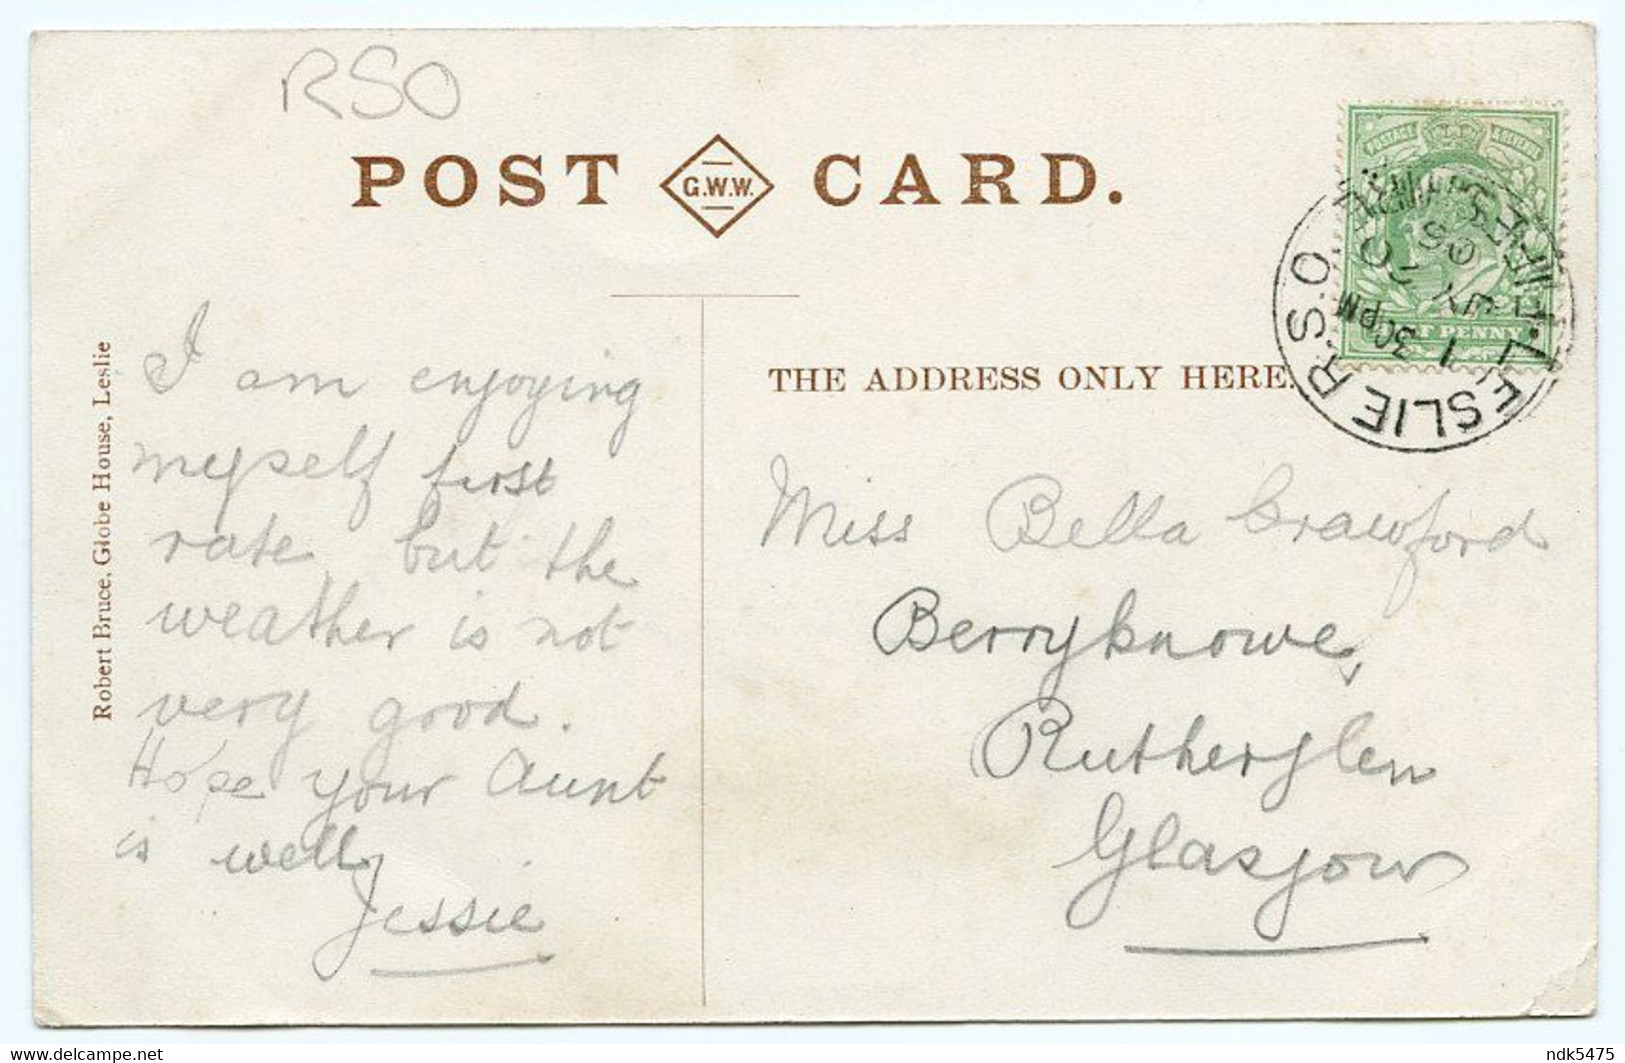 RSO
POST G.W.W. CARD.
Robert Bruce, Globe House, Leslie
I am enjoying
myself first
rate but the
weather is not
very good.
Hope your Aunt
is well
Jessie
THE ADDRESS ONLY HERE.
Miss Bella Crawford
Berryknowe,
Rutherglen
Glasgow
POSTAGE & REVENUE
HALF PENNY
LESLIE R.S.O. FIFESHIRE
1 30PM
JY 20
06
delcampe.net
ndk5475